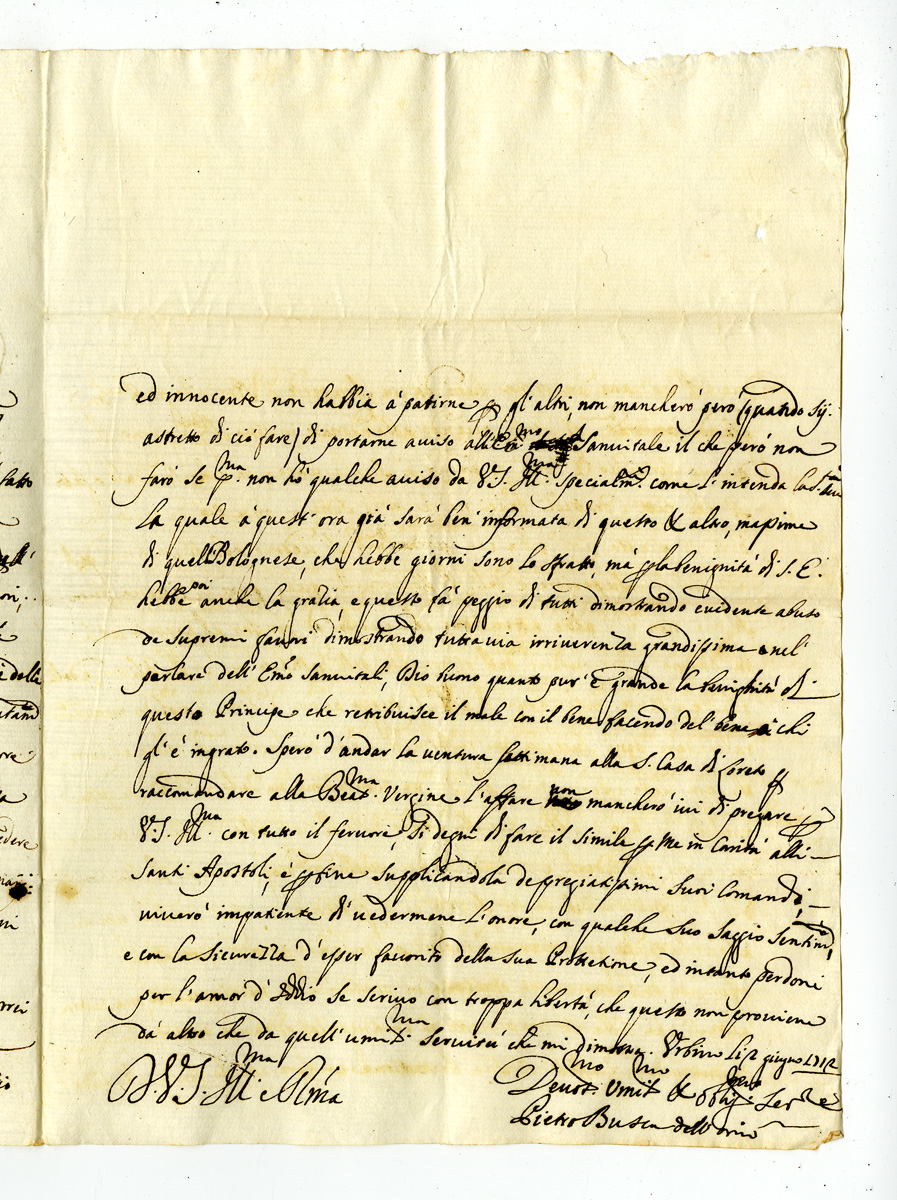 ed innocente non habbia á patirne p gl'altri, non mancheró peró (quando sij
astretto di ció fare) di portarne auuiso all'Em.mo Sanuitale il che peró non
faró se p.ma non hó qualche auuiso da V.S. Ill.ma specialm.te come l'intenda la
La quale á quest'ora giá sará ben'informata di questo & altro, massime
di quell Bolognese, che hebbe giorni sono lo sfratto, má p la benignitá di S. E.
hebbe poi anche la grazia, e questo fá peggio di tutti dimostrando euidente abuso
de supremi fauori dimostrando tuttauia irriuerenza grandissima nel'
parlare dell'Em.o Sanuitali, Dio buono quanto pur'é grande la benignitá di
questo Principe che retribuisce il male con il bene facendo del bene á chi
gl'é ingrato. Speró d'andar la ventura settimana alla S. Casa di Loreto p
raccomandare alla Beat.ma Vergine l'affare non mancheró iui di pregare p
V.S. Ill.ma con tutto il feruore, si degni di fare il simile p me in Caritá alli
Santi Apostoli, é p fine supplicandola de pregiatissimi suoi Comandi,
viueró impatiente di uedermene l'onore, con qualche suo saggio sentim.to,
e con la sicurezza d'esser fauorito della sua Protettione, ed intanto perdoni
per l'amor d'Iddio se scriuo con troppa libertá, che questo non prouiene
dá altro che da quell'umil.ma seruitú che mi dimostra. Vrbino li 12 giugno 1712
D.V.S. Ill.ma e R.ma
Deuot.mo Vmil.mo & Oblig.mo Ser.re
Pietro Busca dell'